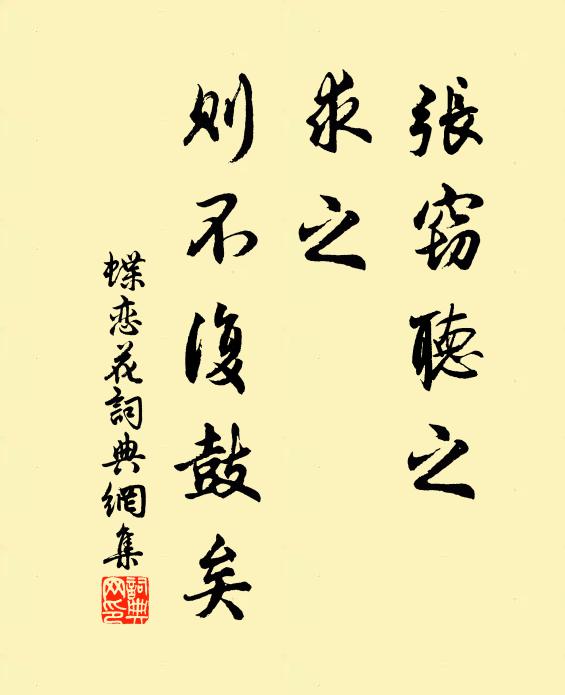 張竊聽之
求之
則不復鼓矣
蝶恋花詞典網集
詞典
网印